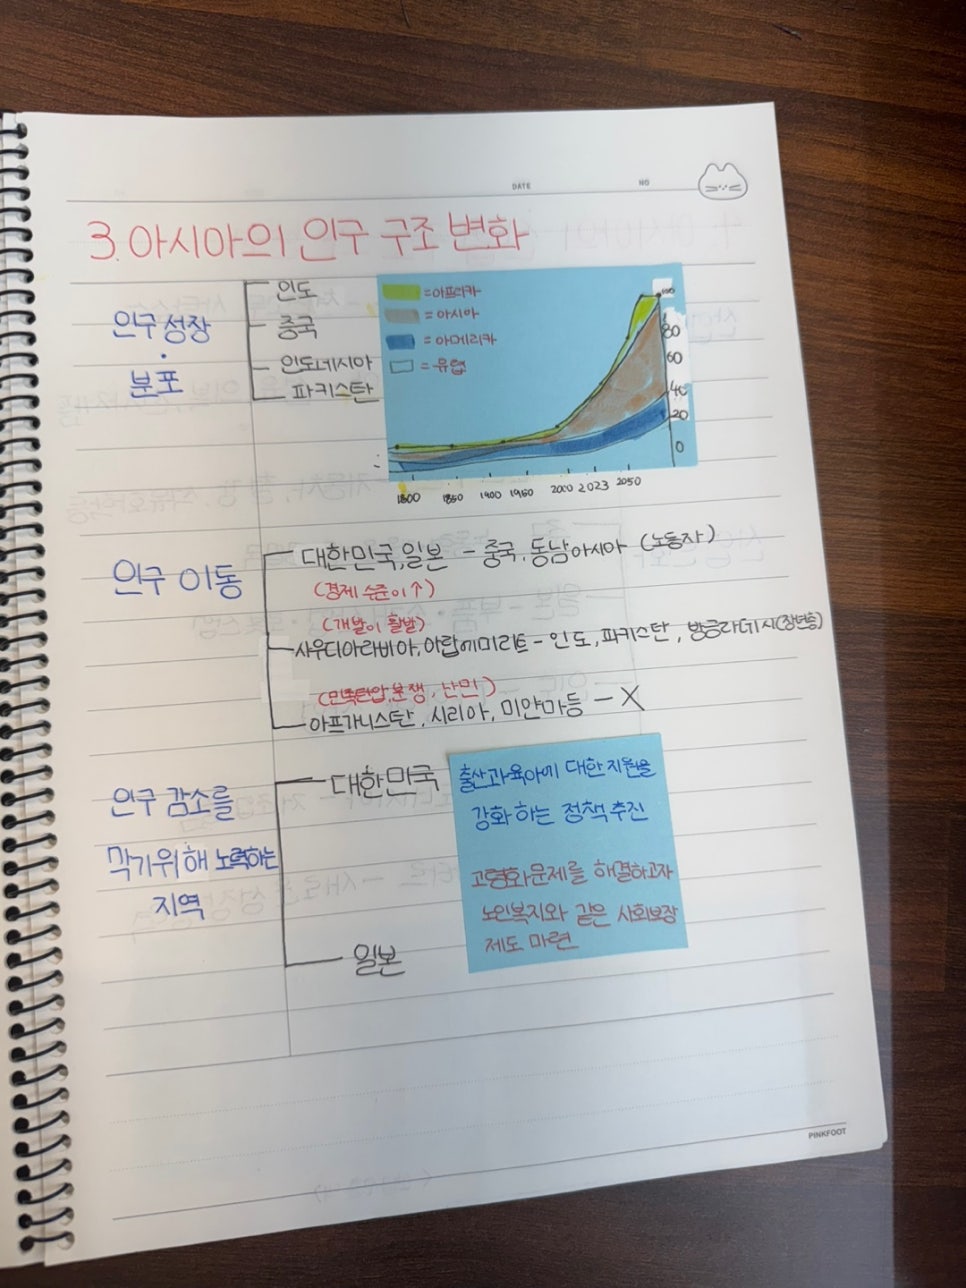 DATE
NO
3. 아시아의 인구 구조 변화
인구 성장
·
분포
인도
중국
인도네시아
파키스탄
=아프리카
=아시아
=아메리카
=유럽
100
80
60
40
20
0
1800 1850 1900 1950 2000 2023 2050
인구 이동
대한민국, 일본 - 중국, 동남아시아 (노동자)
(경제 수준이↑)
(개발이 활발)
사우디아라비아, 아랍에미리트 - 인도, 파키스탄, 방글라데시(장년층)
(민족탄압, 분쟁, 난민)
아프가니스탄, 시리아, 미얀마등 - X
인구 감소를
막기위해 노력하는
지역
대한민국
일본
출산과 육아에 대한 지원을
강화 하는 정책 추진
고령화문제를 해결하고자
노인복지와 같은 사회보장
제도 마련
PINKFOOT